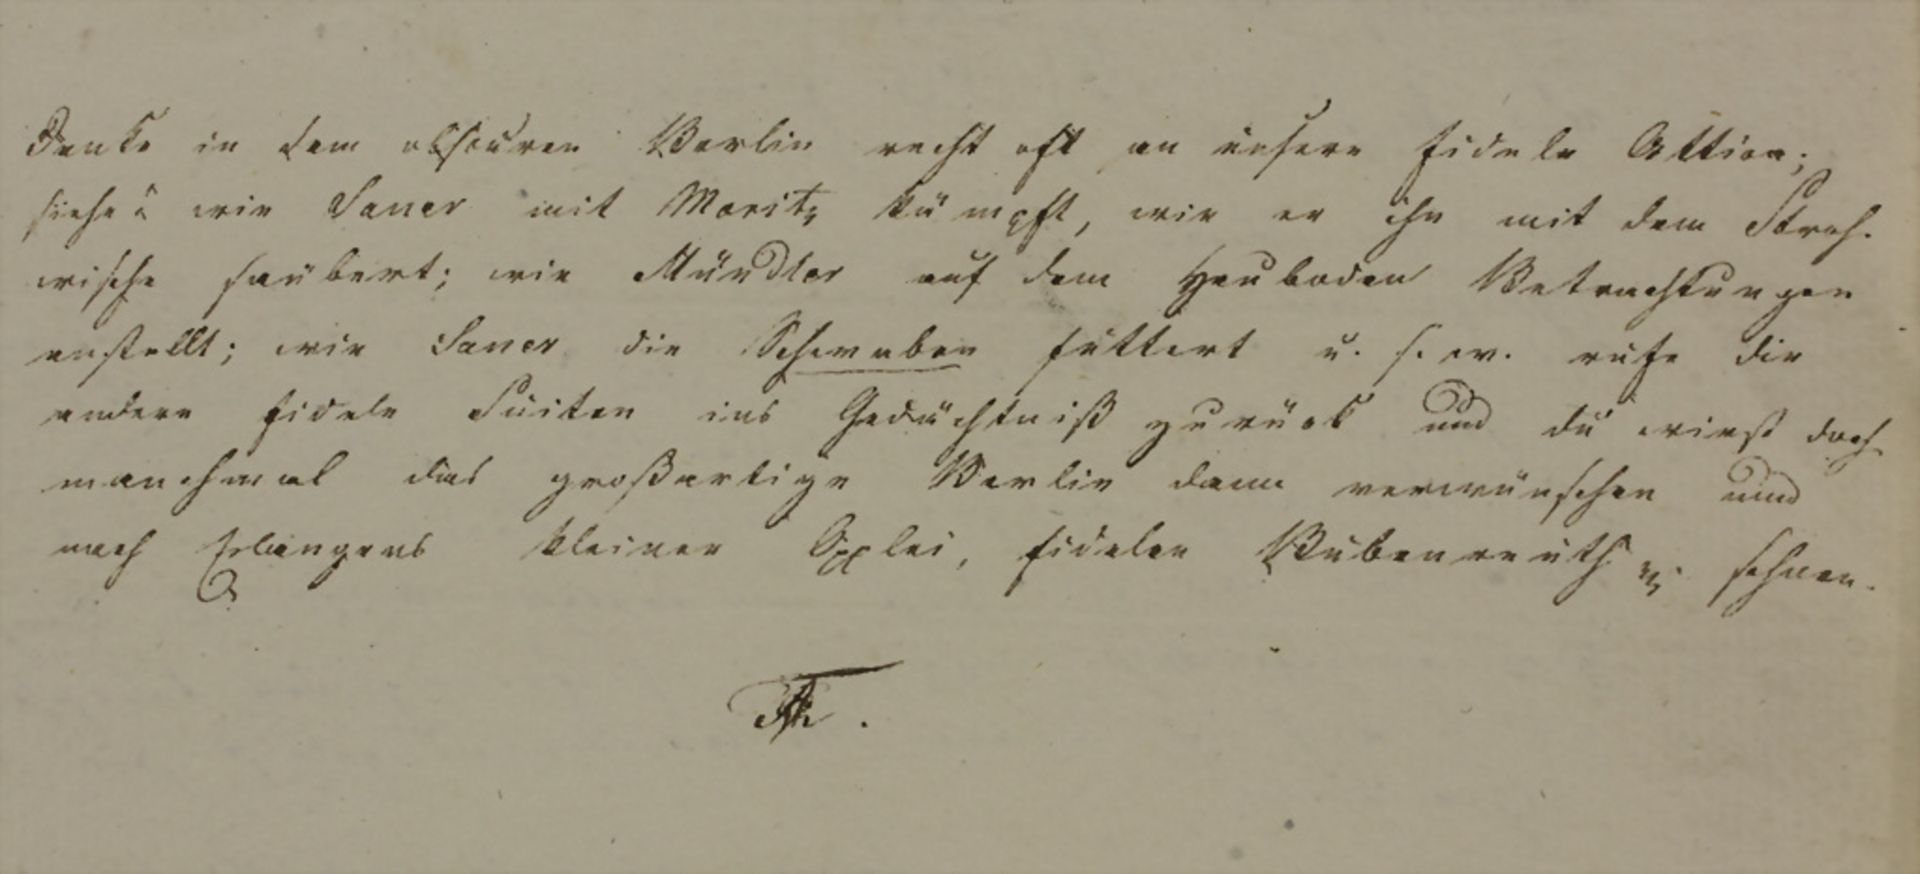 Denke in dem obscuren Berlin recht oft an unsere fidele Attica;
siehe wie Sauer mit Moritz kämpft, wie er ihn mit dem Stroh-
wische säubert; wie Mündler auf dem Heuboden Betrachtungen
anstellt; wie Sauer die Schwaben füttert u. s. w. rufe dir
andere fidele Suiten ins Gedächtniß zurück und du wirst doch
manchmal das großartige Berlin dann verwünschen und
nach Erlangens kleiner fidelen Bubenreuth sehnen.